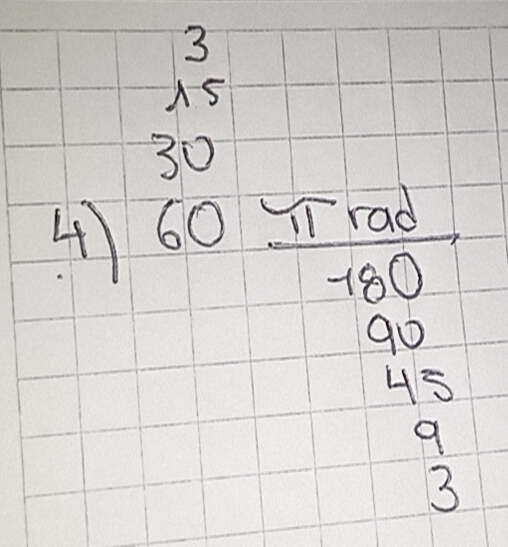 3
15
30
4) 60 π rad
180
90
45
9
3